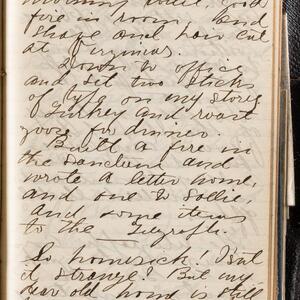 fire in room, and
shave and hair cut
at
Down to office
and set two sticks
of type on my story
Turkey and roast
goose for dinner.
Built a fire in
the sanctum and
wrote a letter home,
and one to Sallie,
and some items
to the Telegraph.
So homesick! Isn't
it strange? But my
dear old home is still